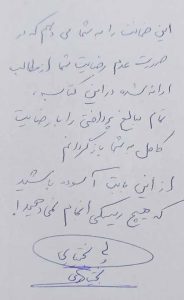 این ضمانت را به شما می دهم که در
صورت عدم رضایت شما از مطالب
ارائه شده در این کتاب،
تمام مبالغ پرداختی را با رضایت
کامل به شما بازگردانم
از این بابت آسوده باشید
که هیچ ریسکی انجام نمی دهید!